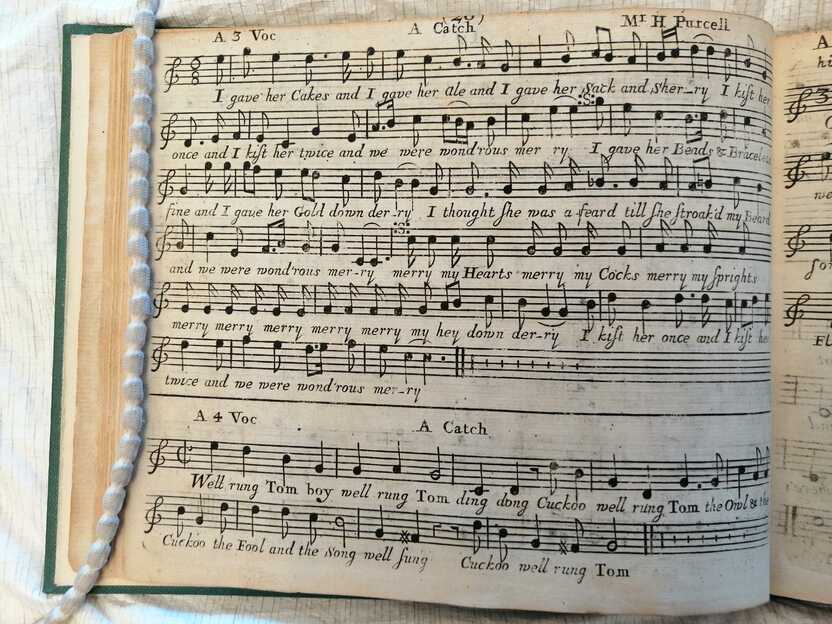 A 3 Voc A Catch Mr H Purcell
I gave her Cakes and I gave her ale and I gave her Sack and Sher-ry I kist her
once and I kist her twice and we were wond'rous mer ry I gave her Beads & Bracelets
fine and I gave her Gold down der-ry I thought she was a-feard till she stroak'd my Beard
and we were wond'rous mer-ry merry my Hearts merry my Cocks merry my sprights
merry merry merry merry merry my hey down der-ry I kist her once and I kist her
twice and we were wond'rous mer-ry
A 4 Voc A Catch
Well rung Tom boy well rung Tom ding dong Cuckoo well rung Tom the Owl & the
Cuckoo the Fool and the Song well sung Cuckoo well rung Tom